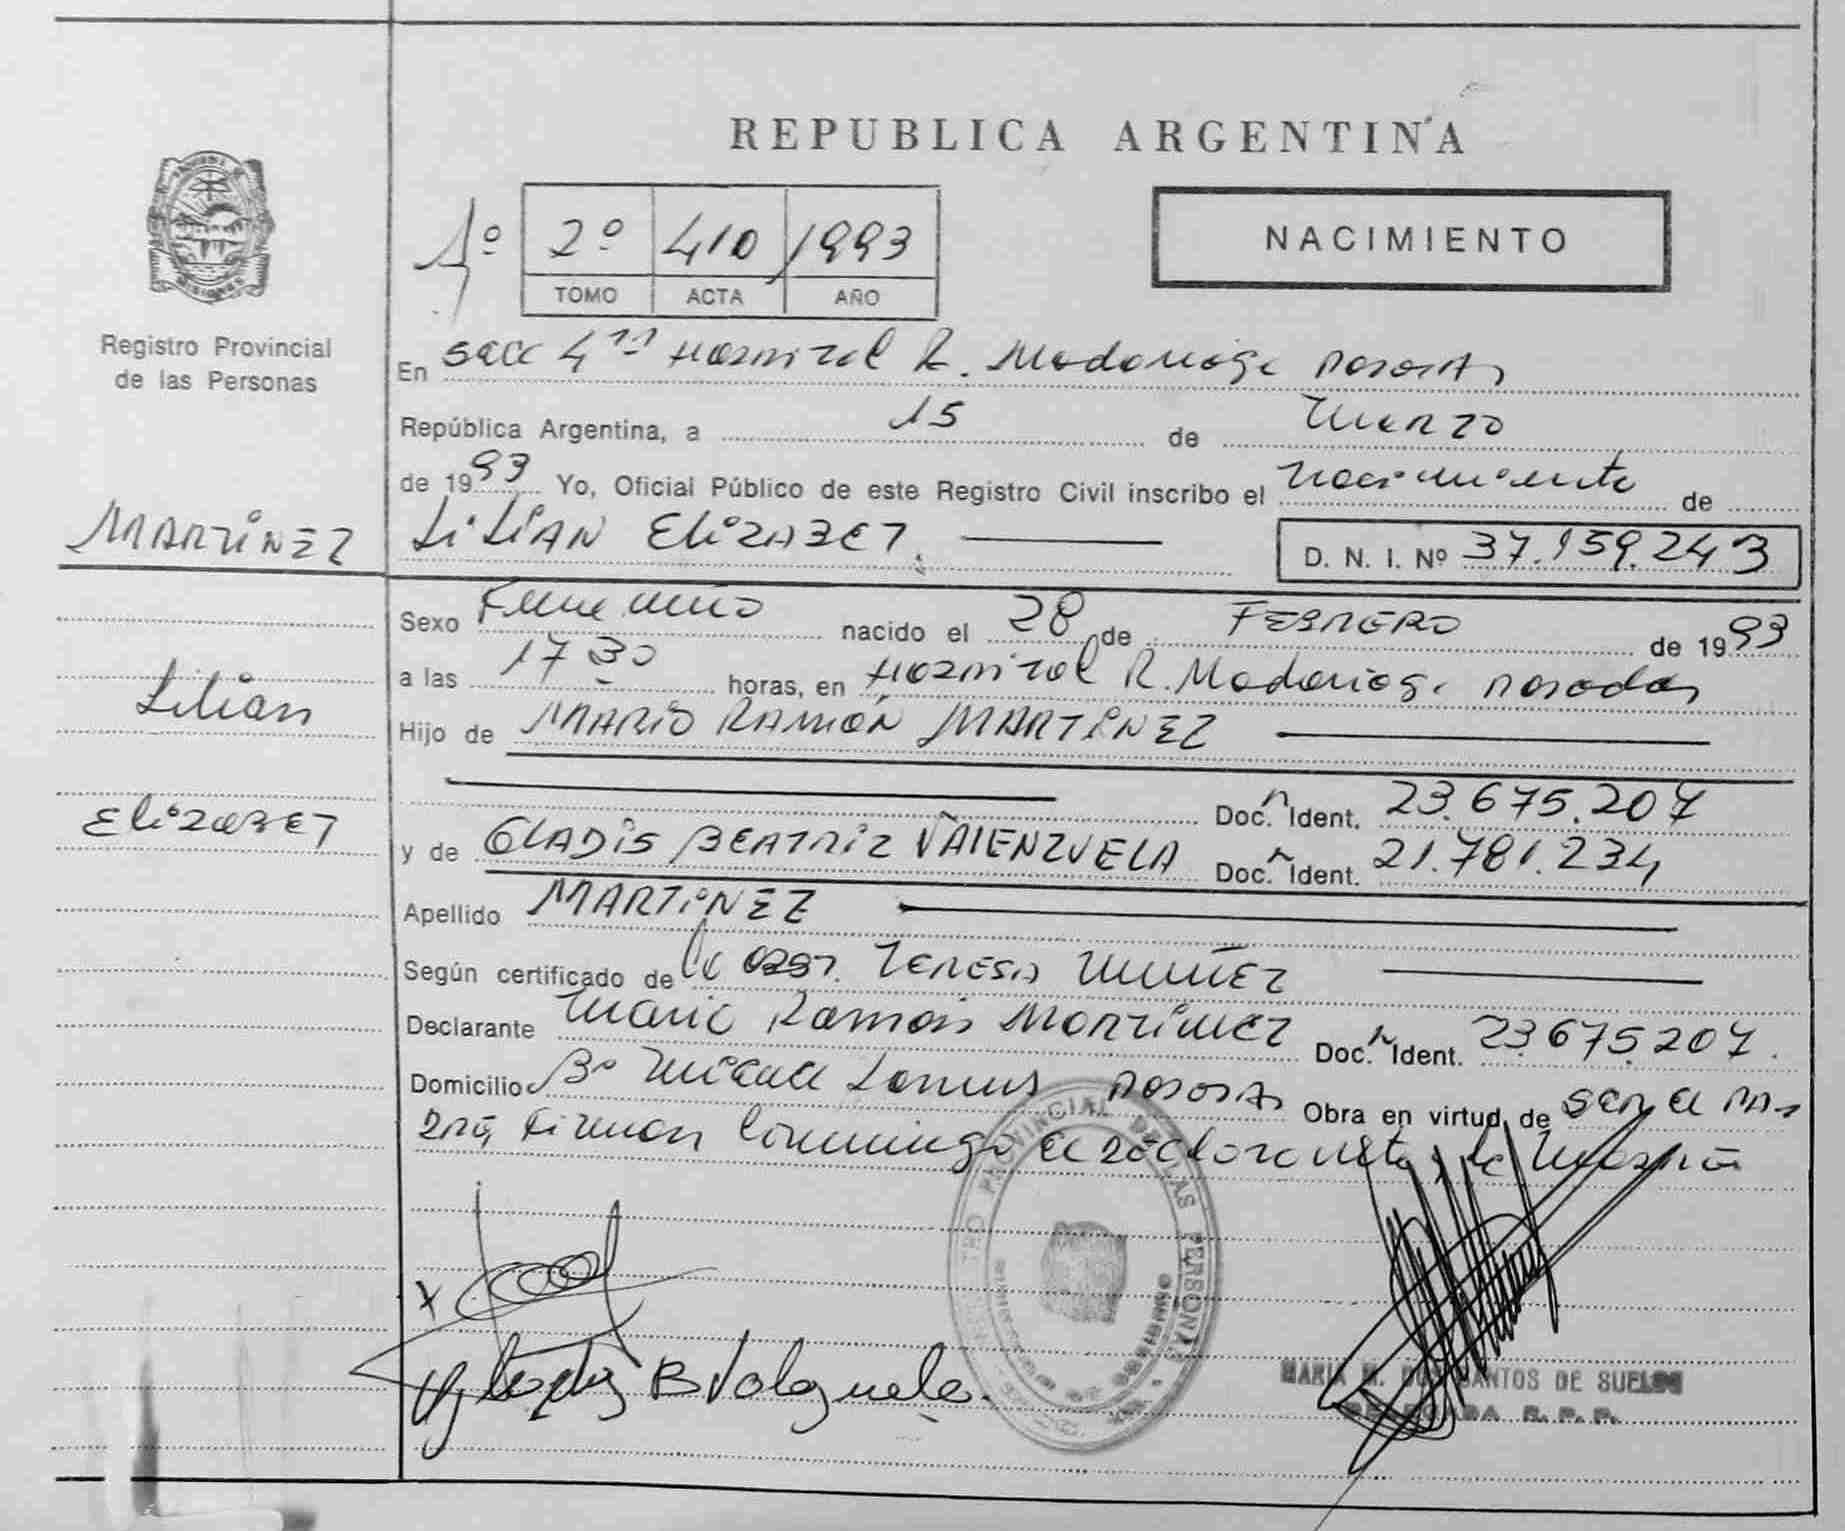 REPUBLICA ARGENTINA
1º 2º 410 1993
TOMO ACTA AÑO
NACIMIENTO
Registro Provincial
de las Personas
En Secc 4ta Hospital R. Madariaga Posadas
República Argentina, a 15 de Marzo
de 1993 Yo, Oficial Público de este Registro Civil inscribo el nacimiento de
MARTINEZ
LiLiAN ElizABET.
D. N. I. Nº 37.159.243
Sexo Femenino nacido el 28 de FEBRERO de 1993
a las 17 30 horas, en Hospital R. Madariaga Posadas
Lilian
Hijo de MARIO RAMÓN MARTINEZ
Doc. n Ident. 23.675.207
Elizabet
y de GLADiS BEATRIZ VALENZUELA Doc. n Ident. 21.781.234
Apellido MARTINEZ
Según certificado de la obst. TERESA MUÑEZ
Declarante Mario Ramón Martinez Doc. n Ident. 23.675.207.
Domicilio Bº Miguel Lanus Posadas Obra en virtud de ser el pa-
dre, Firman conmigo el declarante y la
Gladys B Valenzuela.
REGISTRO PROVINCIAL DE LAS PERSONAS
MARIA M. DOS SANTOS DE SUELDO
DELEGADA R. P. P.